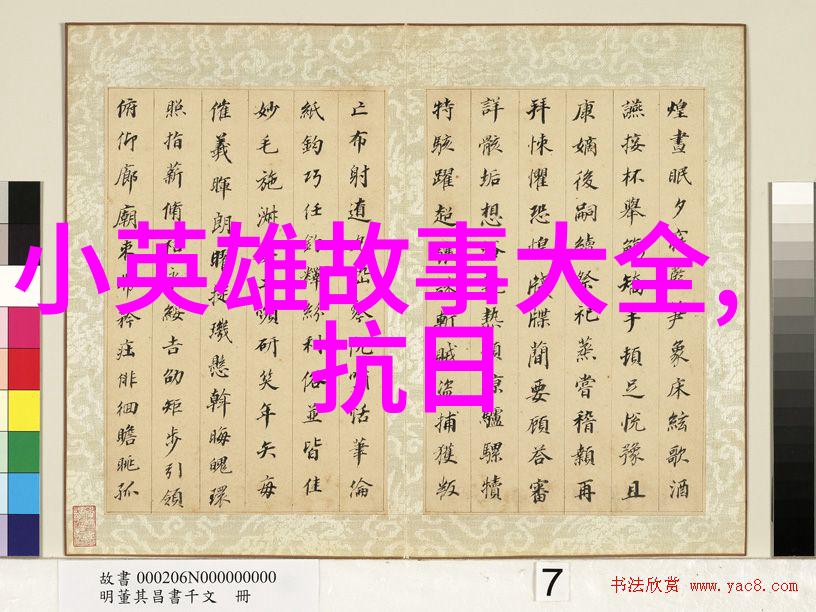 煌晝眠夕象床絃歌酒
讌接杯舉手頓足悅豫且
康嫡後嗣續祭祀蒸嘗稽顙再
拜悚懼恐惶牋牒簡要顧荅審
詳骸垢想熱願涼驢騾犢
特駭躍超誅斬賊盜捕獲叛
亡布射遼阮恬筆倫
紙鈞巧任釣釋紛利俗並皆佳
妙毛施淑研笑年矢每
催羲暉朗曜璣懸斡晦魄環
照指薪脩永綏吉劭矩步引領
俯仰廊廟束帶矜莊徘徊瞻眺孤
小英雄故事大全,
抗日
故書 000206N000000000
明董其昌書千文 冊
7
书法欣赏 www.yac8.com